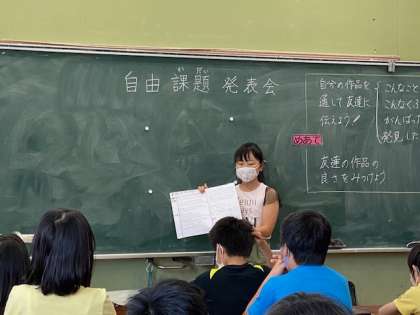 自由 課題 発表会
かだい
自分の作品を
通して友達に
伝えよう!
こんなこと
こんなくろ
がんばった
発見した
めあて
友達の作品の
良さをみつけよう